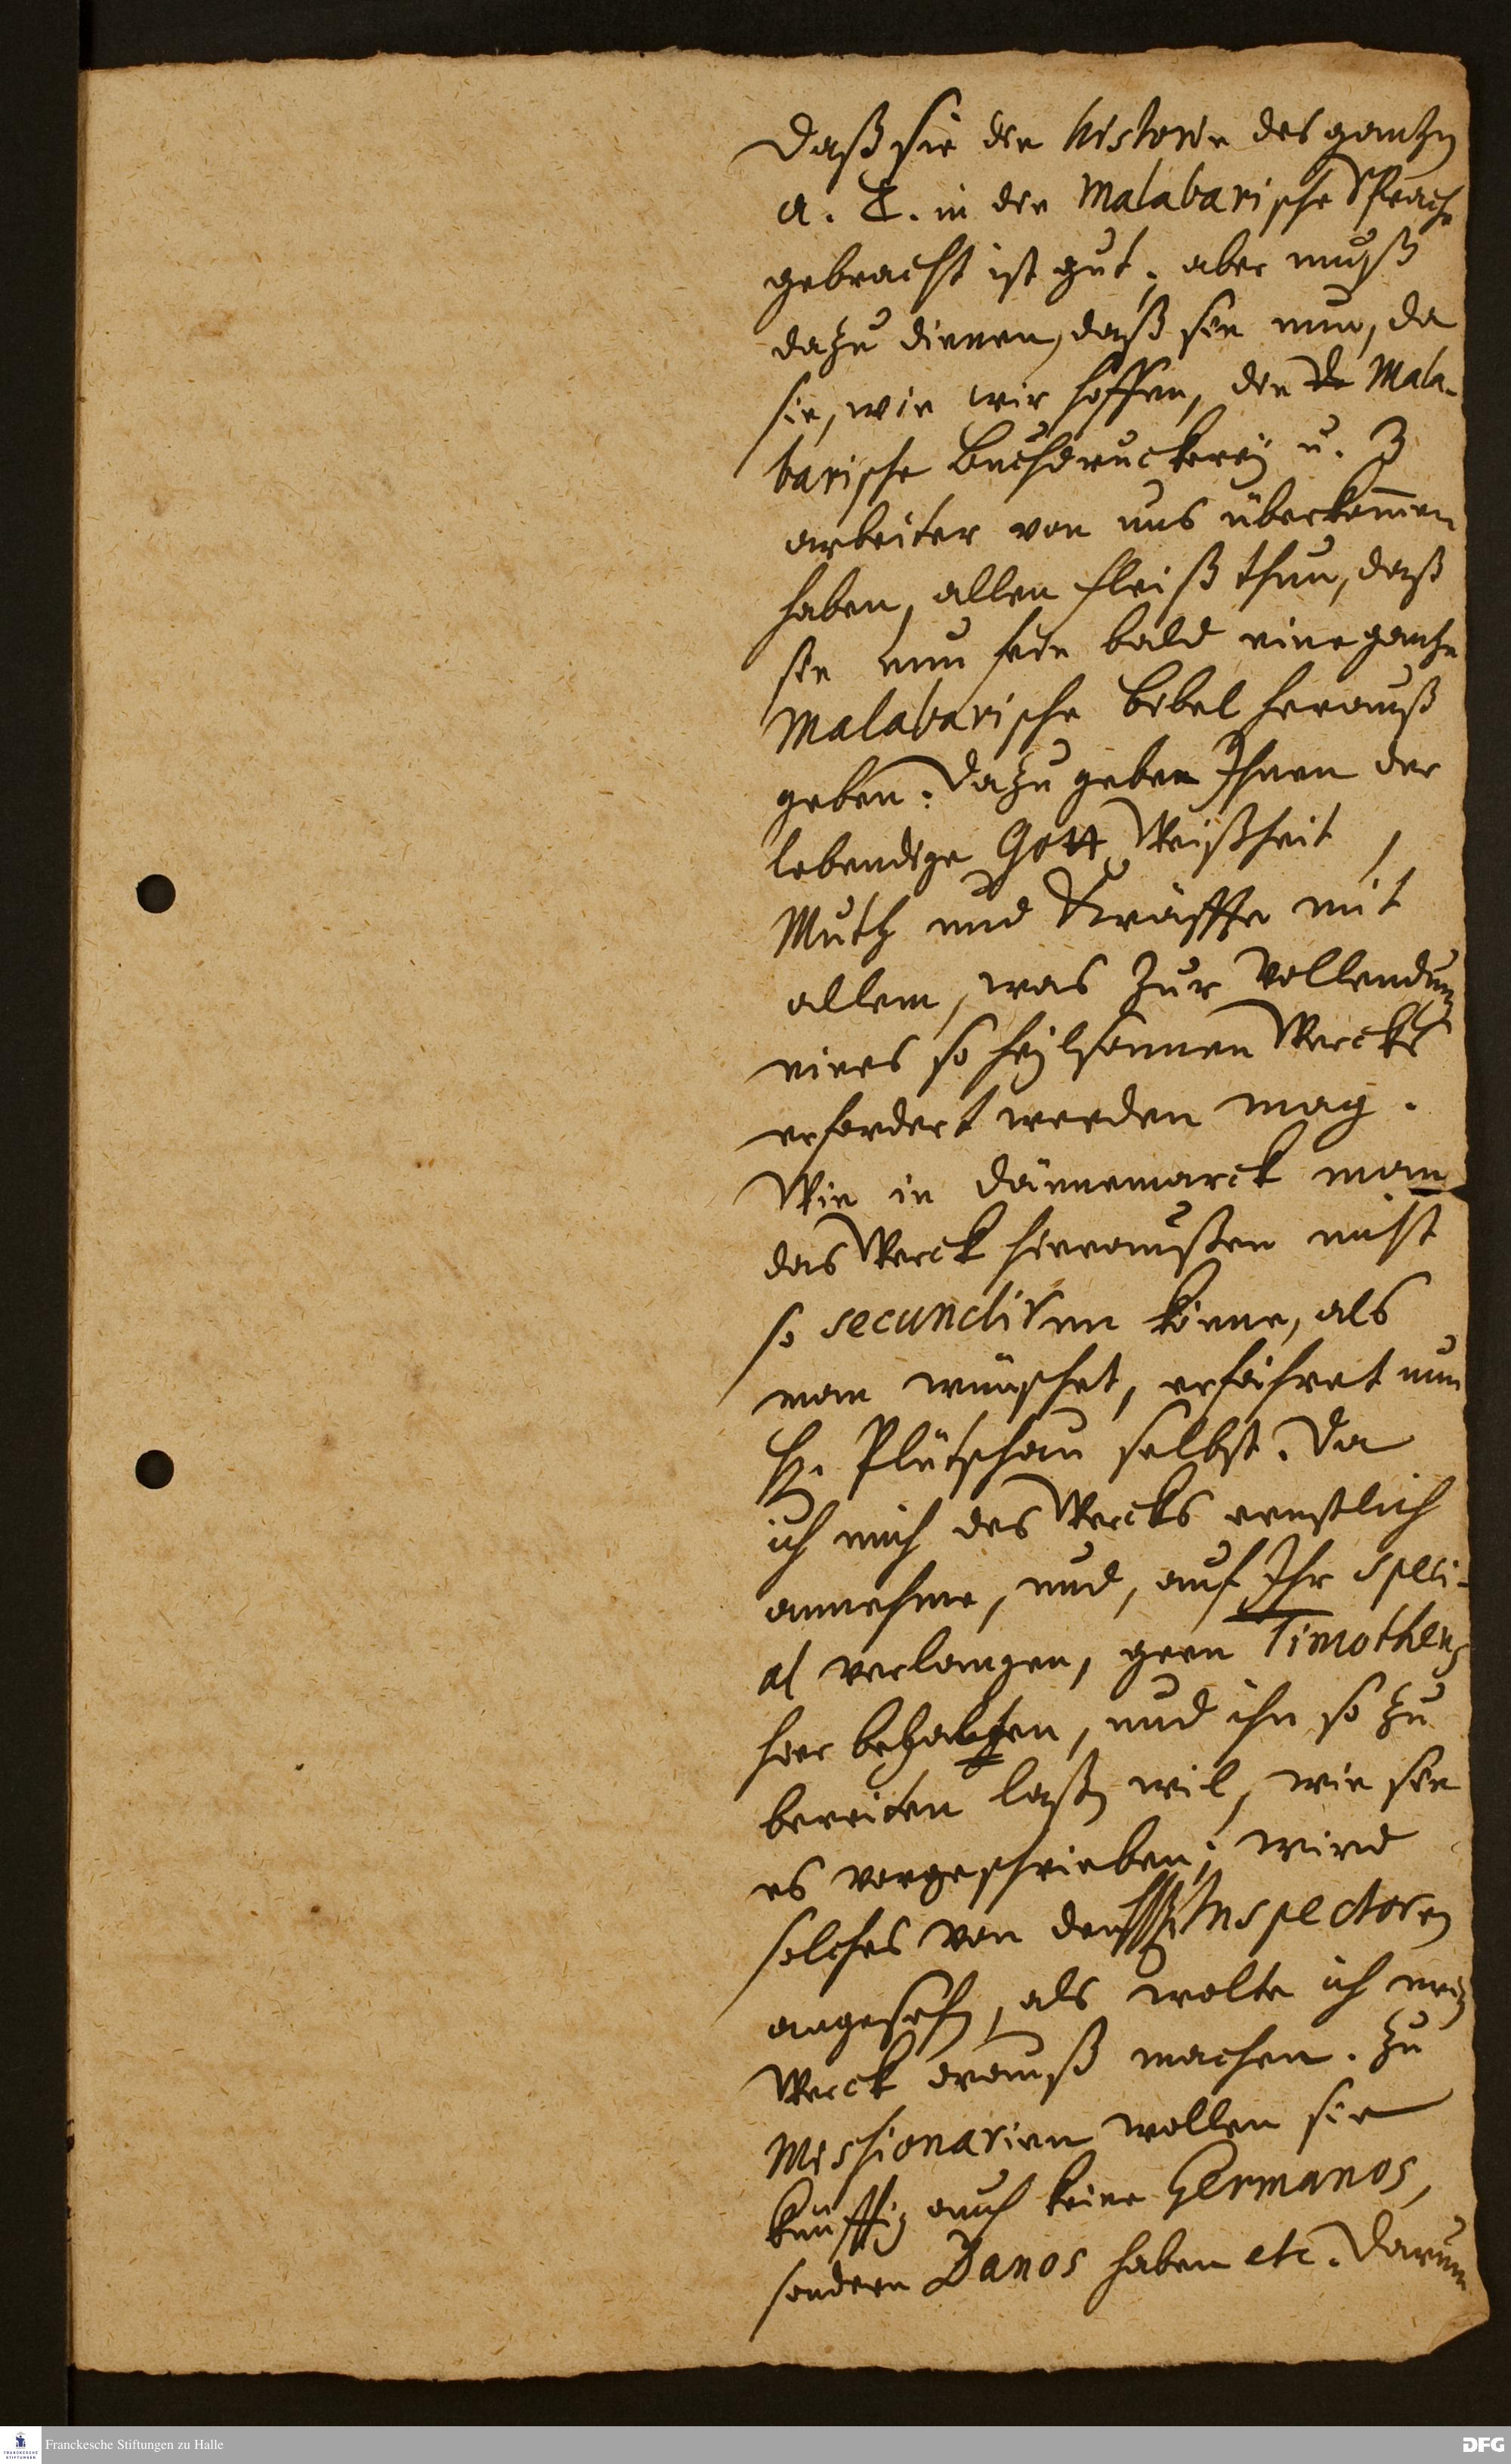 Daß sie die Historie des gantzen
A. T. in die Malabarische Sprache
gebracht ist gut; aber muß
dazu dienen, daß sie nun, da
sie, wie wir hoffen, die Mala-
barische Buchdruckerey u. 3
arbeiter von uns überkom̄en
haben, allen fleiß thun, daß
sie nun fein bald eine gantze
Malabarische Bibel herauß
geben. Dazu gebe Ihnen der
lebendige Gott Weißheit,
Muth und Kräffte mit
allem, was zur Vollendung
eines so heylsamen Wercks
erfordert werden mag.
Wie in Dännemarck man
das Werck hieraußen nicht
so secundiren könne, als
man wünschet, erfähret nun
Hr. Plütschau selbst. Da
ich mich des Wercks ernstlich
annehme, und, auf Ihr speci-
al verlangen, gern Timotheus
hier behalten, und ihn so zu
bereiten laßen wil, wie sie
es vorgeschrieben; wird
solches von den HHn Inspectoren
angesehen, als wolte ich mein
Werck drauß machen. Zu
Missionarien wollen sie
künfftig auch keine Germanos,
sondern Danos haben etc. Darum
Franckesche Stiftungen zu Halle
FRANCKESCHE
STIFTUNGEN
DFG